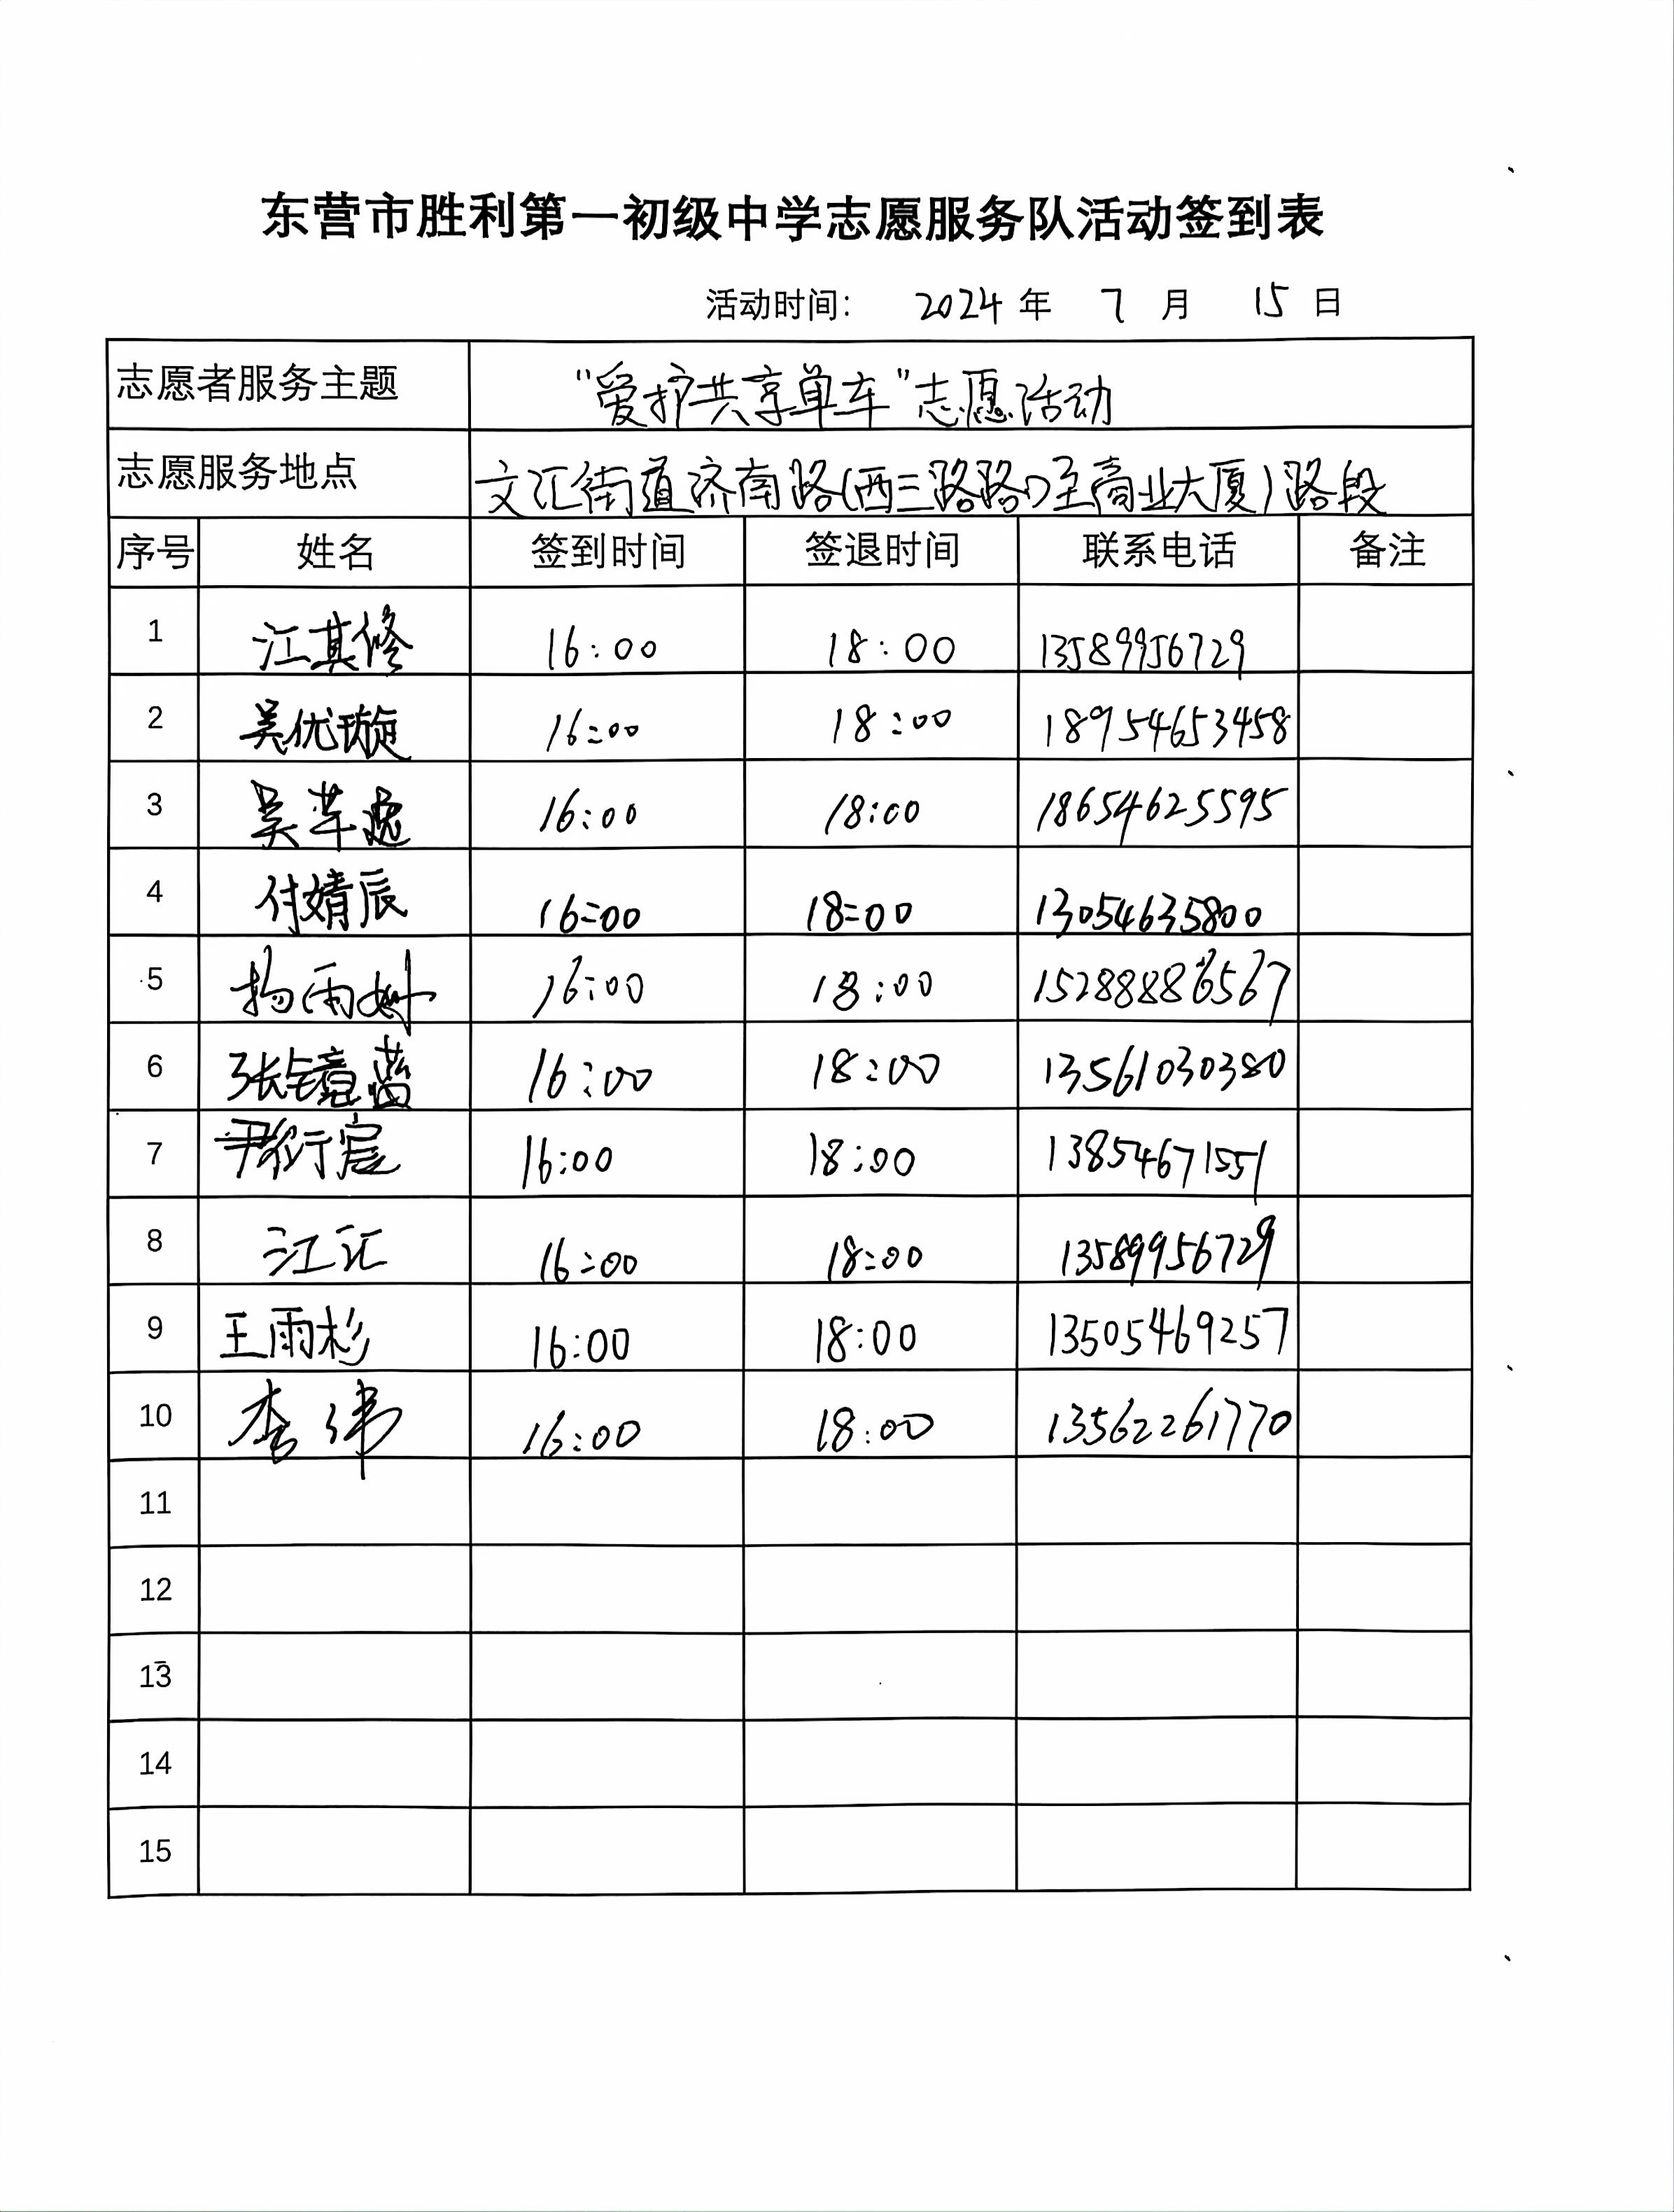 东营市胜利第一初级中学志愿服务队活动签到表
活动时间： 2024 年 7 月 15 日
志愿者服务主题 “爱护共享单车”志愿活动
志愿服务地点 文汇街道济南路(西三路路口至商业大厦)路段
序号 姓名 签到时间 签退时间 联系电话 备注
1 江其修 16:00 18:00 13589956729
2 吴优璇 16:00 18:00 18954653458
3 吴芊逸 16:00 18:00 18654625595
4 付婧辰 16:00 18:00 13054635800
5 杨雨 16:00 18:00 15288886567
6 张 蓝 16:00 18:00 13561030380
7 尹衍宸 16:00 18:00 13854671551
8 江汇 16:00 18:00 13589956729
9 王雨杉 16:00 18:00 13505469257
10 李纬 16:00 18:00 13562261770
11
12
13
14
15